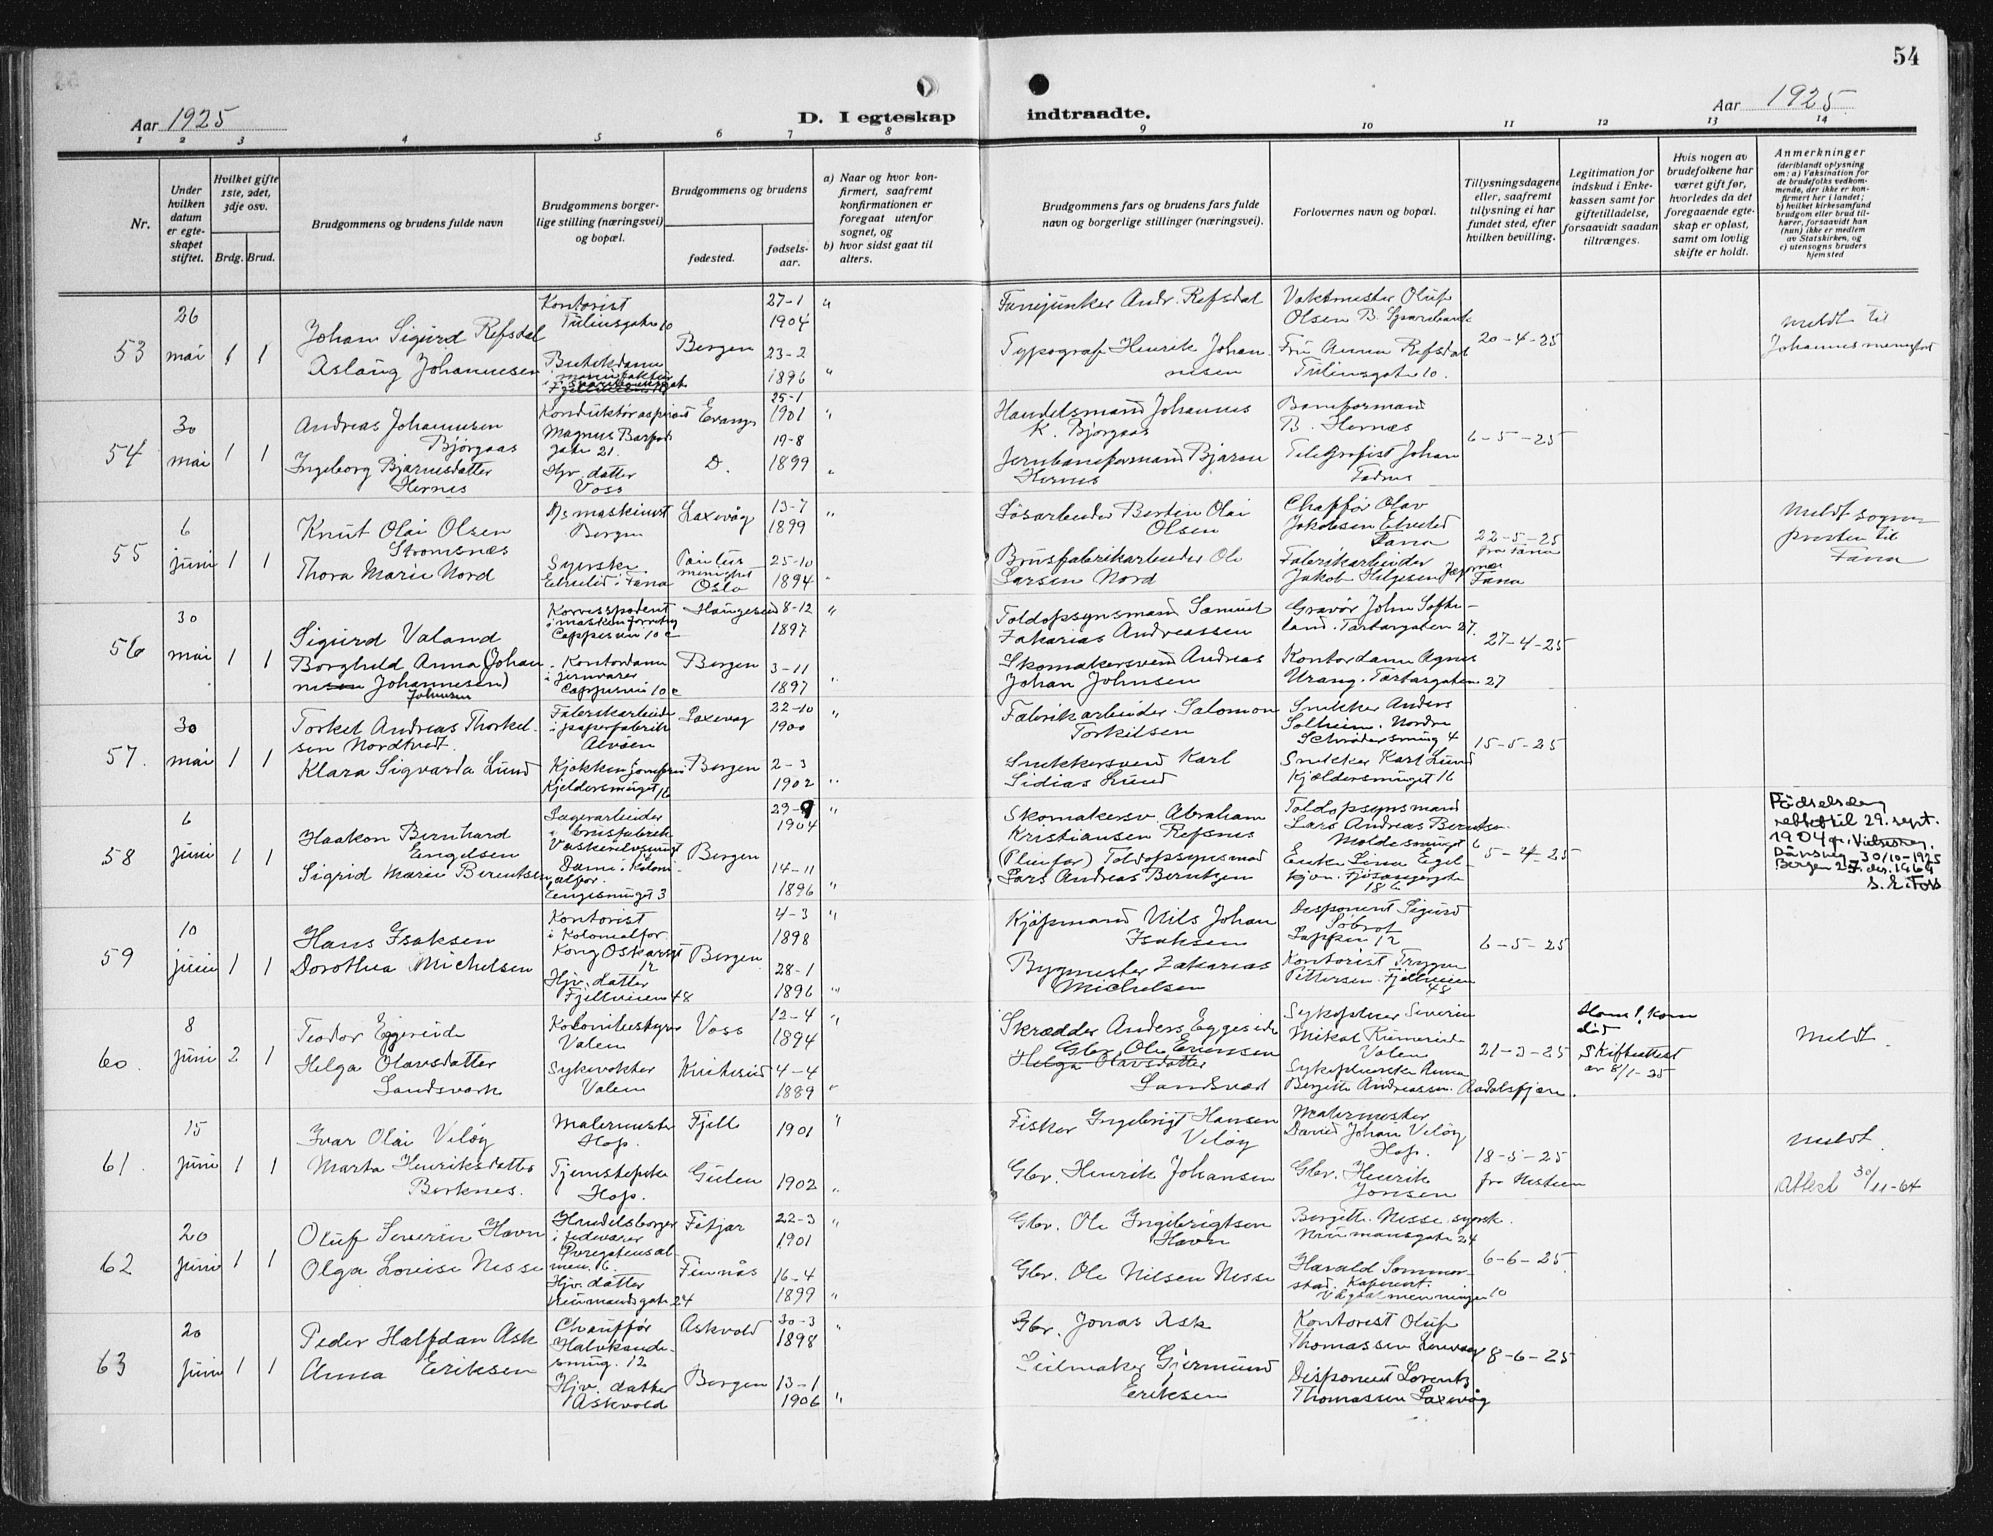 54
Aar 1925
D. I egteskap indtraadte.
Aar 1925
1 2 3 4 5 6 7 8 9 10 11 12 13 14
Nr.
Under hvilken datum er egteskapet stiftet.
Hvilket gifte 1ste, 2det, 3dje osv.
Brdg. Brud.
Brudgommens og brudens fulde navn
Brudgommens borgerlige stilling (næringsvei) og bopæl.
Brudgommens og brudens
fødested.
fødselsaar.
a) Naar og hvor konfirmert, saafremt konfirmationen er foregaat utenfor sognet, og
b) hvor sidst gaat til alters.
Brudgommens fars og brudens fars fulde navn og borgerlige stillinger (næringsvei).
Forlovernes navn og bopæl.
Tillysningsdagene eller, saafremt tillysning ei har fundet sted, efter hvilken bevilling.
Legitimation for indskud i Enkekassen samt for giftetilladelse, forsaavidt saadan tiltrænges.
Hvis nogen av brudefolkene har været gift før, hvorledes da det foregaaende egteskap er opløst, samt om lovlig skifte er holdt.
Anmerkninger
(deriblandt oplysning om: a) Vaksination for de brudefolks vedkommende, der ikke er konfirmert her i landet; b) hvilket kirkesamfund brudgom eller brud tilhører, forsaavidt han (hun) ikke er medlem av Statskirken, og c) utensogns bruders hjemsted
53
26 mai
1 1
Johan Sigurd Refsdal
Aslaug Johannesen
Kontorist
Tulinsgate 10
Bergen
27-1
1904
23-2
1896
Fanejunker Andr. Refsdal
Typograf Henrik Johannesen
Vaktmester Oluf
Olsen B. Sparebank
Fru Anna Refsdal
Tulinsgate 10.
20-4-25
meldt til
54
30 mai
1 1
Andreas Johannesen
Bjørgaas
Ingeborg Bjarnesdatter
Hernes
Konduktøraspirant
Magnus Barfods
gate 21.
Hjv. datter
Voss
Evanger
D.
25-1
1901
19-8
1899
Handelsmand Johannes
K. Bjørgaas
Jernbaneformand Bjarne
Hernes
Baneformand
B. Hernes
Telegrafist Johan
6-5-25
55
6 juni
1 1
Knut Olai Olsen
Stromsnæs
Thora Marie Nord
D/s maskinist
Bergen
Syerske
Laxevåg
Oslo
13-7
1899
25-10
1894
Løsarbeider Bertin Olai
Olsen
Brusfabrikarbeider Ole
Larsen Nord
Chaffør Olav
Jakobsen Elvelid
Fana
Fabrikarbeider
Jakob Helgesen
Fana
22-5-25
fra Fana
meldt sogne
presten til
Fana
56
30 mai
1 1
Sigurd Valand
Borghild Anna (Johan
nesen Johannesen)
Johnsen
Kontordame
i jernvarer
Cappesvei 10 c
Haugesund
Bergen
8-12
1897
3-11
1897
Toldopsynsmand Samuel
Zakarias Andreassen
Skomakersvend Andreas
Johan Johnsen
Gravør John Softeland. Tartargaten 27.
Kontordame Agnes
Urang. Tartargaten 27
27-4-25
57.
30 mai
1 1
Torkel Andreas Thorkelsen Nordtvedt.
Klara Sigvarda Lund
Fabrikarbeider
i papirfabrik
Alvøen
Kjøkkenjomfru
Kjeldersmuget 16
Laxevag
Bergen
22-10
1900
2-3
1902
Fabrikarbeider Salomon
Torkilsen
Snekkersvend Karl
Sidias Lund
Snekker Anders
Solheim. Nordre
Schrødersmug 4
Snekker Karl Lund
Kjeldersmuget 16
15-5-25
58
6 juni
1 1
Haakon Bernhard
Engelsen
Sigrid Marie Berentsen
Lagerarbeider
i brusfabrik
Dame i Kolonialfor.
Engesmuget 3
Bergen
29-9
1904
14-11
1896
Skomakersv. Abraham
Kristiansen Refsnes
(Pleiefar) Toldopsynsmand
Lars Andreas Berntsen
Toldopsynsmand
Lars Andreas Berntsen
Moldesmuget 6
5-4-25
Fødselsdag
rettet til 29. sept.
1904
30/10-1925
59
10 juni
1 1
Hans Isaksen
Dorothea Michelsen
Kontorist
i Kolonialfor.
Kong Oskarsgt
12
Hjv. datter
Fjellveien 48
Bergen
4-3
1898
28-1
1896
Kjøpmand Nils Johan
Isaksen
Bygmester Zakarias
Michelsen
Disponent Sigurd
Søbrot
Kontorist Trygve
Pettersen. Fjellveien
48
6-5-25
60.
8 juni
2 1
Teodor Eggereide
Helga Olavsdatter
Landsvark
Kolonibestyrer
Valen
Sykevokter
Valen
Voss
12-4
1894
4-4
1889
Skrædder Anders Eggereide
Gbr. Ole Evensen
Helga Olavsdatter
Landsværk
Sykepleier Severin
Mikal
Valen
Sykepleierske Anna
Bergitte Andreassen.
21-3-25
Skifteattest
av 8/1-25
Meldt.
61.
15 juni
1 1
Ivar Olai Veløy
Marta Henriksdatter
Berknes.
Malermester
Hop.
Hop.
Fjell
Gulen
1901
1902
Fisker Ingebrigt Hansen
Veløy
Gbr. Henrik Johansen
Malermester
David Johan Veløy
Hop.
Gbr. Henrik
Jonsen
18-5-25
meldt.
Attest 30/11-64
62
20 juni
1 1
Oluf Severin Havn
Olga Lovise Nesse
Handelsborger
i fedevarer
Hjv. datter
Neumandsgate 24
Fitjar
Finnås
22-3
1901
16-4
1899
Gbr. Ole Ingebrigtsen
Havn
Gbr. Ole Nilsen Nesse
Bergitte Nesse
Neumansgate 24
Harald Sommerstad.
10
6-6-25
63
20 juni
1 1
Peder Halfdan Ask
Anna Eriksen
Chauffør
Halvkandesmug. 12
Hjv. datter
Askvold
Askvold
Bergen
30-3
1898
13-1
1906
Gbr. Jonas Ask
Seilmaker Gjermund
Eriksen
Kontorist Oluf
Thomassen
Disponent Lorentz
Thomassen Laxevåg
8-6-25